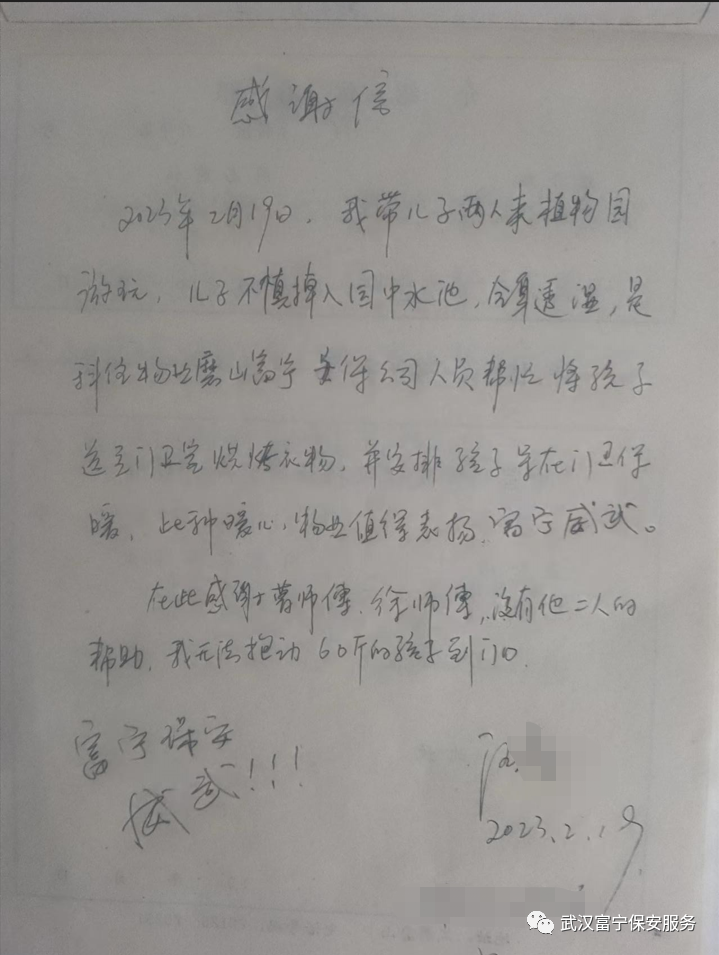 感谢信
2023年2月19日,我带儿子两人来植物园
游玩,儿子不慎掉入园中水池,全身透湿,是
物业磨山富宁安保公司人员帮忙将孩子
送至门卫室烘烤衣物,并安排孩子呆在门卫保
暖,此种暖心,物业值得表扬,富宁威武。
在此感谢曹师傅,徐师傅,没有他二人的
帮助,我无法抱动60斤的孩子到门口.
富宁保安
威武!!!
2023.2.19
武汉富宁保安服务